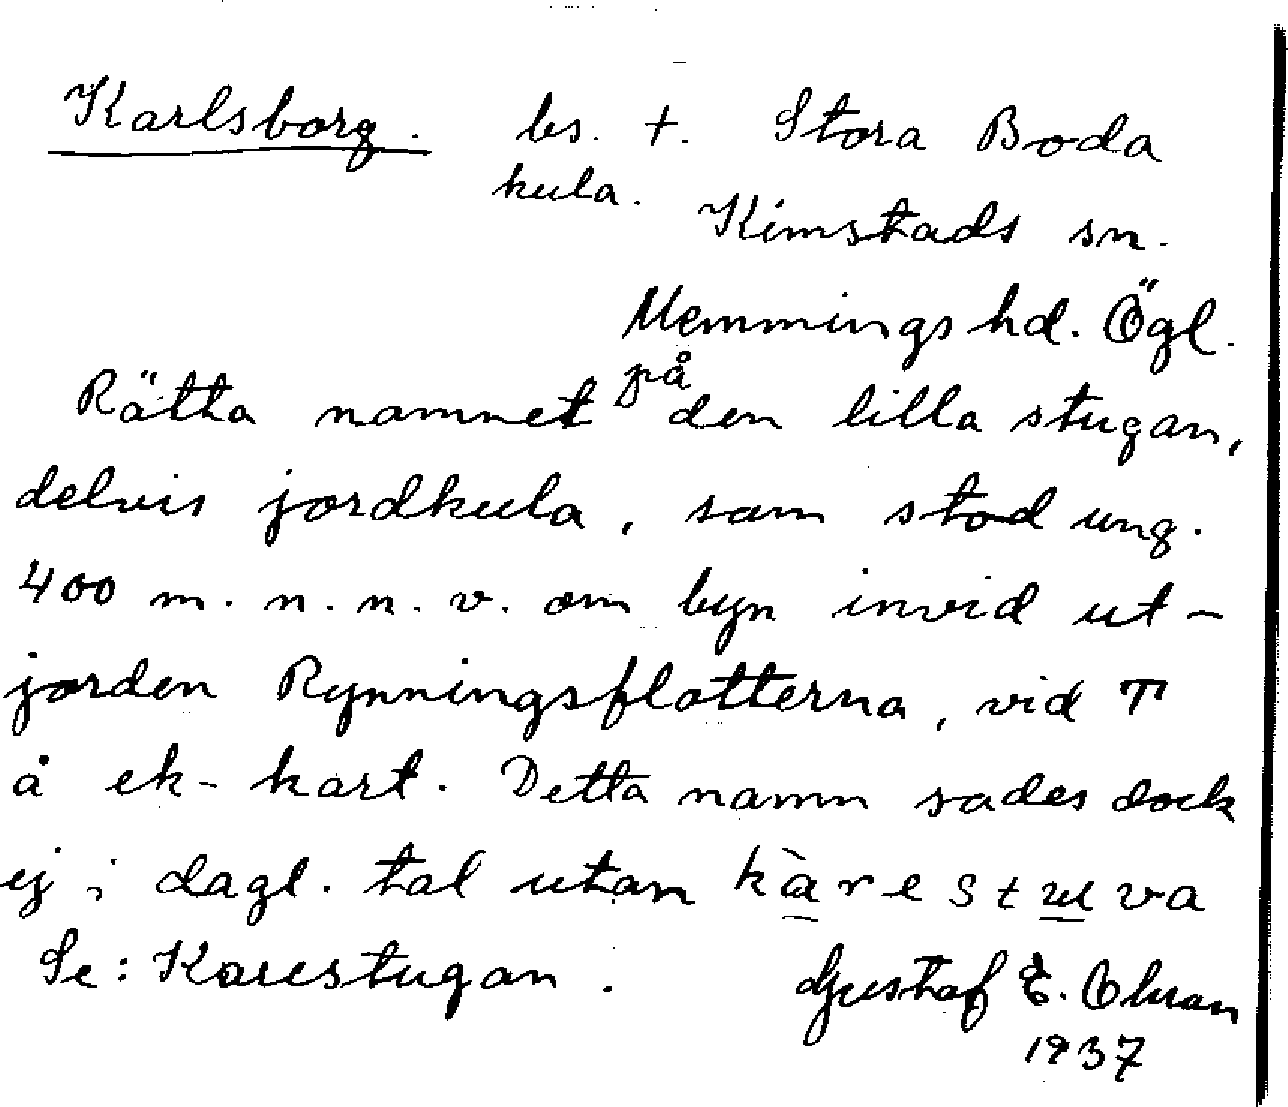 Karlsborg. bs. +. Stora Boda
kula. Kimstads sn.
Memmings hd. Ögl.
Rätta namnet på den lilla stugan,
delvis jordkula, som stod ung.
400 m. n. n. v. om byn invid ut-
jorden Rynningsflatterna, vid T
å ek-kart. Detta namn sades dock
ej i dagl. tal utan kàrestuva
Se: Karestugan. Gustaf E.
1937